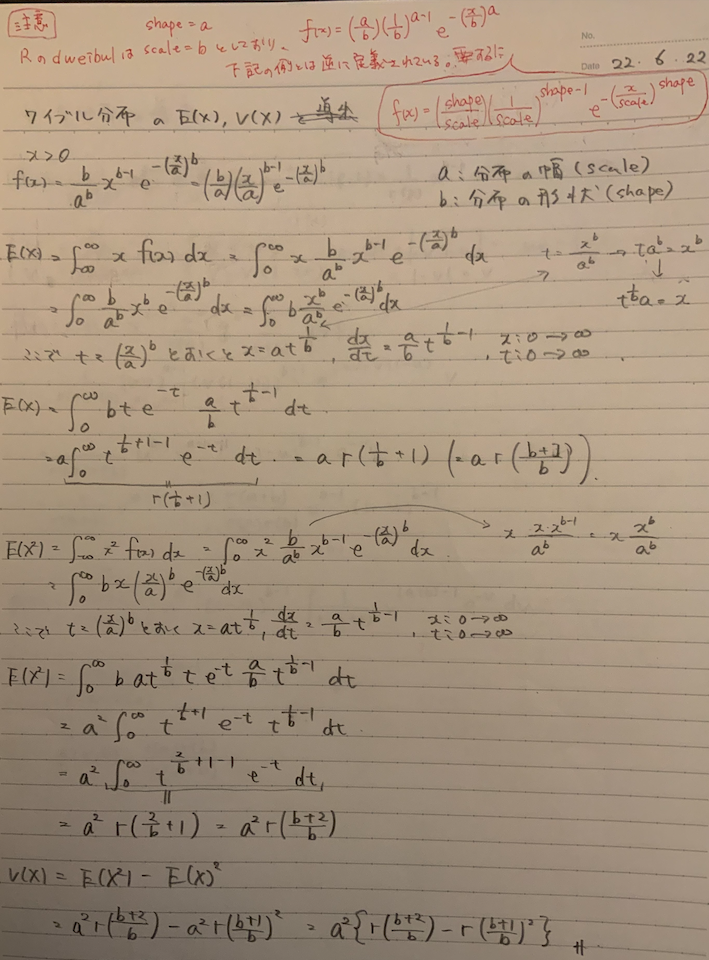 注意
shape = a
f(x) = (a/b)(1/b)^{a-1} e^{-(x/b)^a}
Rのdweibulはscale = bとしており、
下記の例とは逆に定義されている。要するに
f(x) = (shape/scale)(1/scale)^{shape-1} e^{-(x/scale)^{shape}}
No.
Date 22. 6. 22
ワイブル分布の E(X), V(X)
x>0
f(x) = b/a^b x^{b-1} e^{-(x/a)^b} = (b/a)(x/a)^{b-1} e^{-(x/a)^b}
a : 分布の幅 (scale)
b : 分布の形状 (shape)
E(X) = ∫_{-∞}^{∞} x f(x) dx = ∫_0^∞ x b/a^b x^{b-1} e^{-(x/a)^b} dx
t = x^b/a^b → ta^b = x^b
↓
t^{1/b} a = x
= ∫_0^∞ b/a^b x^b e^{-(x/a)^b} dx = ∫_0^∞ b x^b/a^b e^{-(x/a)^b} dx
ここで t = (x/a)^b とおくと x = at^{1/b}, dx/dt = a/b t^{1/b-1}, x : 0 → ∞
t : 0 → ∞.
E(X) = ∫_0^∞ bt e^{-t} a/b t^{1/b-1} dt
= a∫_0^∞ t^{1/b+1-1} e^{-t} dt = a Γ(1/b+1) (= a Γ((b+1)/b)).
Γ(1/b+1)
E(X²) = ∫_{-∞}^{∞} x² f(x) dx = ∫_0^∞ x² b/a^b x^{b-1} e^{-(x/a)^b} dx
x x·x^{b-1}/a^b = x x^b/a^b
= ∫_0^∞ bx (x/a)^b e^{-(x/a)^b} dx
ここで t = (x/a)^b とおく x = at^{1/b}, dx/dt = a/b t^{1/b-1}, x : 0 → ∞
t : 0 → ∞
E(X²) = ∫_0^∞ b at^{1/b} t e^{-t} a/b t^{1/b-1} dt
= a² ∫_0^∞ t^{1/b+1} e^{-t} t^{1/b-1} dt
= a² ∫_0^∞ t^{2/b+1-1} e^{-t} dt,
= a² Γ(2/b+1) = a² Γ((b+2)/b)
V(X) = E(X²) - E(X)²
= a² Γ((b+2)/b) - a² Γ((b+1)/b)² = a² {Γ((b+2)/b) - Γ((b+1)/b)²}